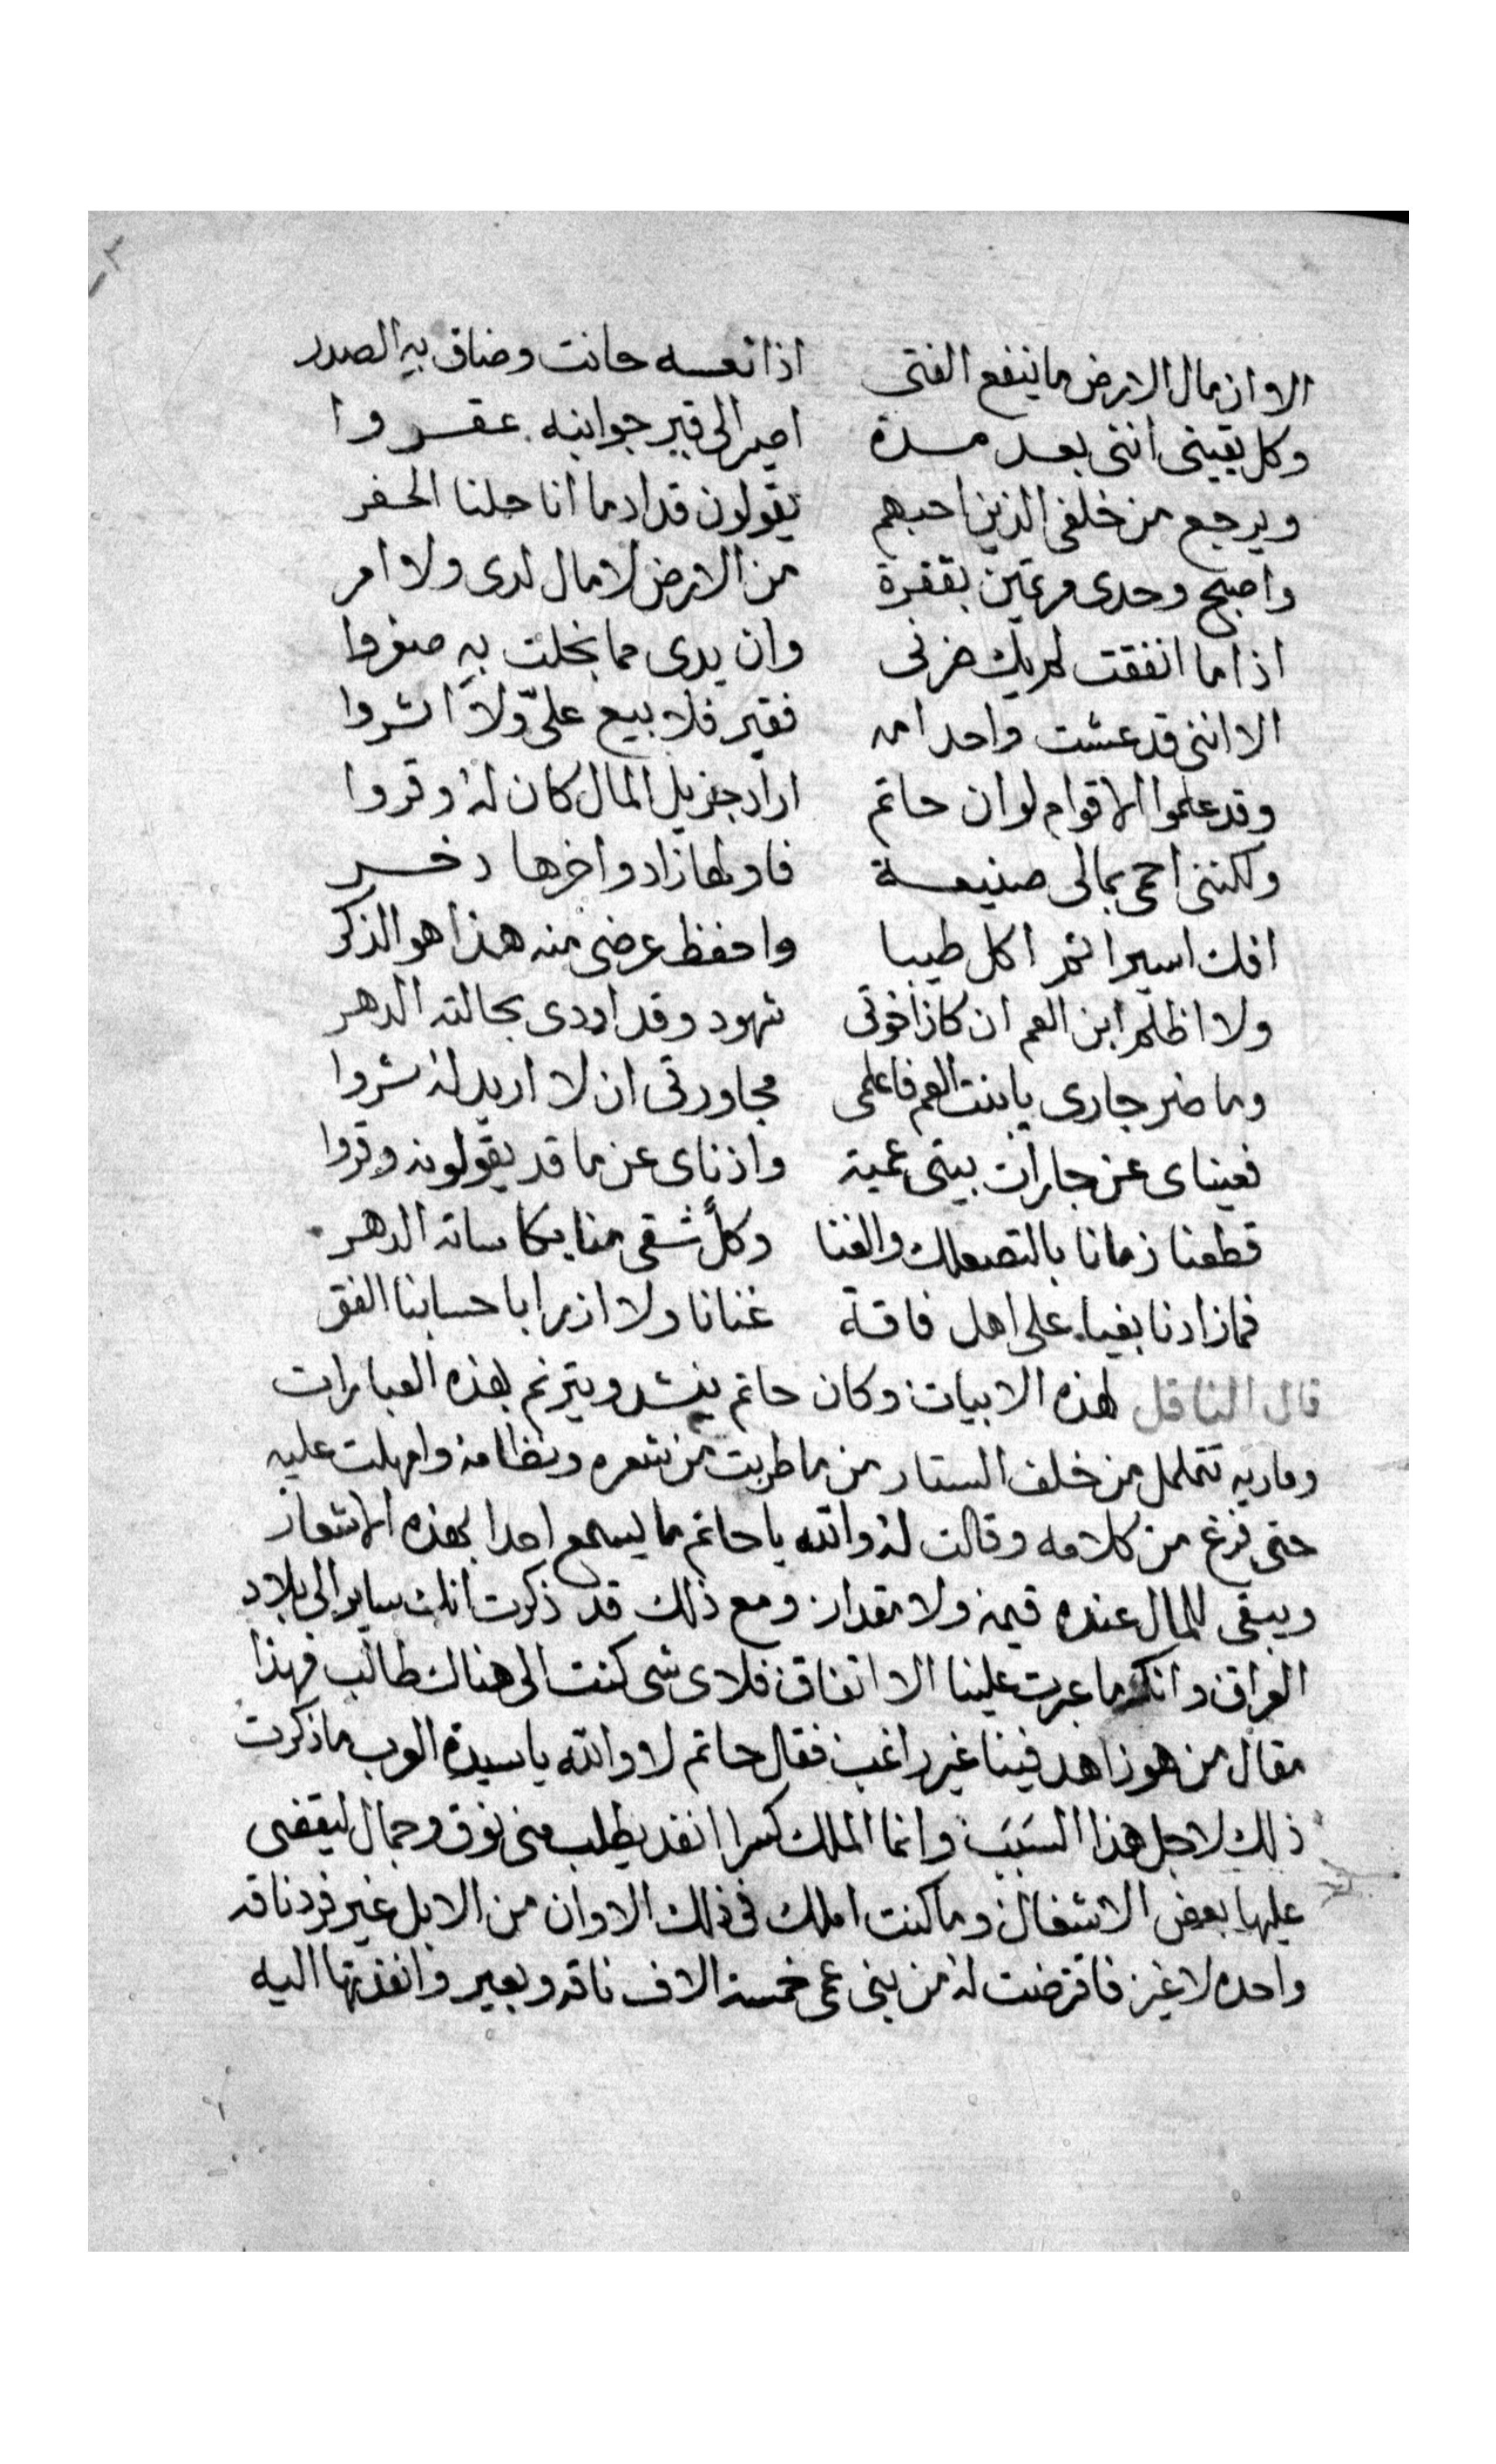 الا وان مال الارض ما ينفع الفتى اذا نفسه حانت وضاق بهِ الصدر
وكل يقيني انني بعد مسدة اصير الى قبر جوانبه عقروا
ويرجع من خلفي الذين احبهم يقولون قد ادما انا ملنا الحفر
واصبح وحدى مرتهن بقفرة من الارض لا مال لدى ولا امر
اذا ما انفقت لم يك ضرنى وان يدى مما بخلت بهِ صفروا
الا انني قد عشت واحد امه فقير فلا بيع علىّ ولا اشروا
وقد علموا الاقوام لو ان حاتم اراد جزيل المال كان لهُ وقروا
ولكنني احمى بمالى صنيعة فاولها زاد واخرها دخر
افك اسيرا ثم اكل طيبا واحفظ عرضى منه هذا هو الذكر
ولا اظلم ابن العم ان كان اخوتى شهود وقد اودى بحالته الدهر
وما ضر جارى يا بنت العم فاعلمى مجاورتى ان لا اريد له شروا
فعيناى عن جارات بيتى عمية واذناى عن ما قد يقولونه وقروا
قطعنا زمانا بالتصعلك والغنا وكلً شقى منا بكاساته الدهر
فما زادنا بغيا على اهل فاقة غنانا ولا ازرا باحسابنا الفق
قال الناقل لهذه الابيات وكان حاتم ينشد ويترنم بهذه العبارات
وماريه تتململ من خلف الستار من ما طربت من شعره ونظامه وامهلت عليه
حتى فرغ من كلامه وقالت لهُ والله يا حاتم ما يسمع احدا بهذه الاشعار
ويبقى للمال عنده قيمه ولا مقدار ومع ذلك قد ذكرت انك ساير الى بلاد
العراق وانك ما عبرت علينا الا اتفاق فلاى شى كنت الى هناك طالب فهذا
مقال من هو زاهد فينا غير راغب فقال حاتم لا والله يا سيدة العرب ما ذكرت
ذلك لاجل هذا السَبَبَ وانما الملك كسرا انفد يطلب منى نوق وجمال ليقضى
عليها بعض الاشغال وما كنت املك فى ذلك الاوان من الابل غير فرد ناقه
واحده لا غير فاقترضت لهُ من بنى عمى خمسة الاف ناقه وبعير وانفذتها اليه